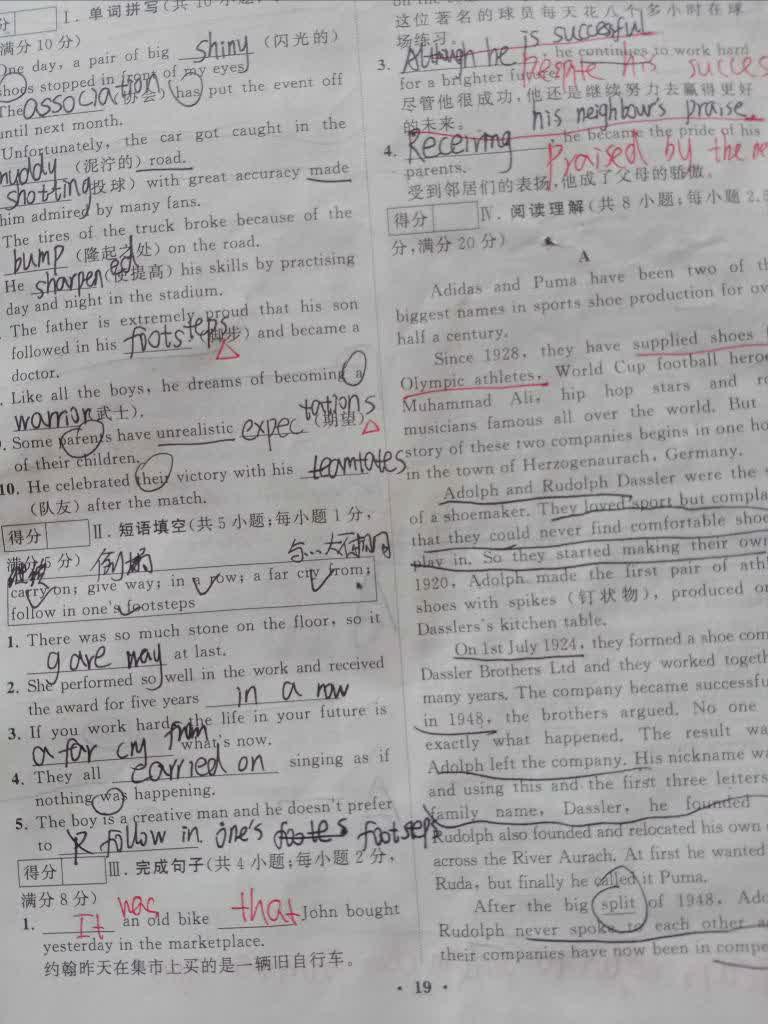 Ⅰ. 单词拼写(共 10 小题
满分 10 分)
One day, a pair of big shiny (闪光的)
shoes stopped in front of my eyes
The association (协会) has put the event off
until next month.
Unfortunately, the car got caught in the
muddy (泥泞的) road.
shotting 投球) with great accuracy made
him admired by many fans.
The tires of the truck broke because of the
bump (隆起之处) on the road.
He sharpened (使提高) his skills by practising
day and night in the stadium.
The father is extremely proud that his son
followed in his footsteps (脚步) and became a
doctor.
Like all the boys, he dreams of becoming a
warrior 武士).
Some parents have unrealistic expectations (期望)
of their children.
10. He celebrated their victory with his teamtates
(队友) after the match.
得分 Ⅱ. 短语填空(共 5 小题;每小题 1 分,
满分 5 分)
carry on; give way; in a row; a far cry from;
follow in one's footsteps
1. There was so much stone on the floor, so it
gave way at last.
2. She performed so well in the work and received
the award for five years in a row
3. If you work hard, the life in your future is
a far cry from what's now.
4. They all carried on singing as if
nothing was happening.
5. The boy is a creative man and he doesn't prefer
to follow in one's footsteps
得分 Ⅲ. 完成句子(共 4 小题;每小题 2 分,
满分 8 分)
1. It was an old bike that John bought
yesterday in the marketplace.
约翰昨天在集市上买的是一辆旧自行车。
这位著名的球员每天花八个多小时在球
场练习。
3. Although he is successful, he continues to work hard
for a brighter future. Despite his succes
尽管他很成功,他还是继续努力去赢得更好
的未来。
4. Receiving his neighbour's praise, he became the pride of his
parents. Praised by the ne
受到邻居们的表扬,他成了父母的骄傲。
得分 Ⅳ. 阅读理解(共 8 小题;每小题 2.5
分,满分 20 分)
A
Adidas and Puma have been two of th
biggest names in sports shoe production for ov
half a century.
Since 1928, they have supplied shoes f
Olympic athletes, World Cup football heroe
Muhammad Ali, hip hop stars and ro
musicians famous all over the world. But
story of these two companies begins in one ho
in the town of Herzogenaurach, Germany.
Adolph and Rudolph Dassler were the s
of a shoemaker. They loved sport but compla
that they could never find comfortable shoe
play in. So they started making their own
1920, Adolph made the first pair of athl
shoes with spikes (钉状物), produced on
Dasslers's kitchen table.
On 1st July 1924, they formed a shoe com
Dassler Brothers Ltd and they worked togeth
many years. The company became successfu
in 1948, the brothers argued. No one
exactly what happened. The result wa
Adolph left the company. His nickname wa
and using this and the first three letters
family name, Dassler, he founded
Rudolph also founded and relocated his own
across the River Aurach. At first he wanted
Ruda, but finally he called it Puma.
After the big split of 1948, Ado
Rudolph never spoke to each other a
their companies have now been in compe
· 19 ·